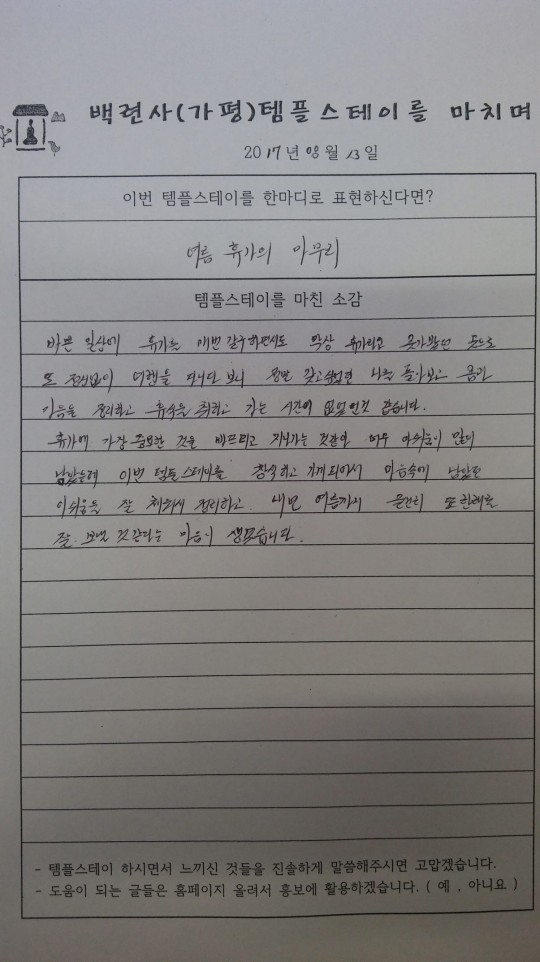 백련사(가평)템플스테이를 마치며
2017년 08월 13일
이번 템플스테이를 한마디로 표현하신다면?
여름 휴가의 마무리
템플스테이를 마친 소감
바쁜 일상에 휴가를 매번 갈구하면서도 막상 휴가라고 곳으로
또 정신없이 여행을 다니다 보니 정말 갖고싶었던 나를 돌아보고 몸과
마음을 정리하고 휴식을 취하고 가는 시간이 없었던것 같습니다.
휴가에 가장 중요한 것을 빠뜨리고 지나가는 것같아 아쉬움이 많이
남았는데 이번 템플스테이를 참석하고 가게되어서 마음속에 남았던
아쉬움을 잘 채워서 정리하고. 내년 여름까지 또 한해를
잘 보낼 것 같다는 마음이 생깁니다.
- 템플스테이 하시면서 느끼신 것들을 진솔하게 말씀해주시면 고맙겠습니다.
- 도움이 되는 글들은 홈페이지 올려서 홍보에 활용하겠습니다. ( 예 , 아니요 )